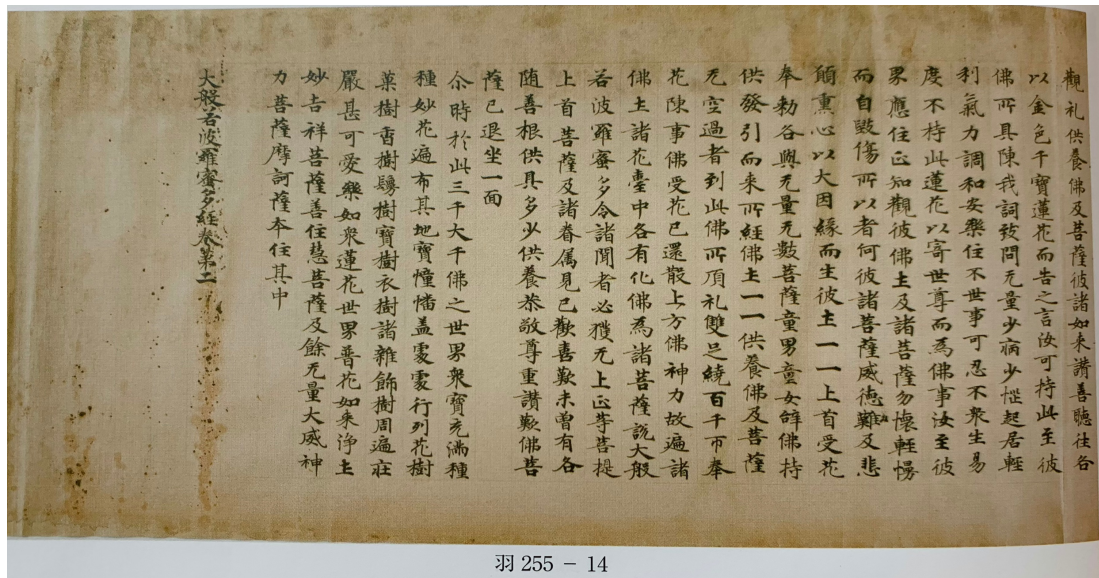 觀礼供養佛及菩薩彼諸如来讚善聽往各
以金色千寶蓮花而告之言汝可持此至彼
佛所具陳我詞致問无量少病少惱起居輕
利氣力調和安樂住不世事可忍不衆生易
度不持此蓮花以寄世尊而為佛事汝至彼
界應住正知觀彼佛土及諸菩薩勿懷輕慢
而自毀傷所以者何彼諸菩薩威德難及悲
願熏心以大因緣而生彼土一一上首受花
奉勅各與无量无數菩薩童男童女辝佛持
供發引而来所經佛土一一供養佛及菩薩
无空過者到此佛所頂礼雙足繞百千帀奉
花陳事佛受花已還散上方佛神力故遍諸
佛土諸花臺中各有化佛為諸菩薩說大般
若波羅蜜多令諸聞者必獲无上正等菩提
上首菩薩及諸眷属見已歡喜歎未曾有各
随善根供具多少供養恭敬尊重讚歎佛菩
薩已退坐一面
尒時於此三千大千佛之世界衆寶充滿種
種妙花遍布其地寶幢幡盖處處行列花樹
菓樹香樹鬘樹寶樹衣樹諸雜飾樹周遍莊
嚴甚可愛樂如衆蓮花世界普花如来淨土
妙吉祥菩薩善住慧菩薩及餘无量大威神
力菩薩摩訶薩夲住其中
大般若波羅蜜多經卷第二
羽 255 － 14